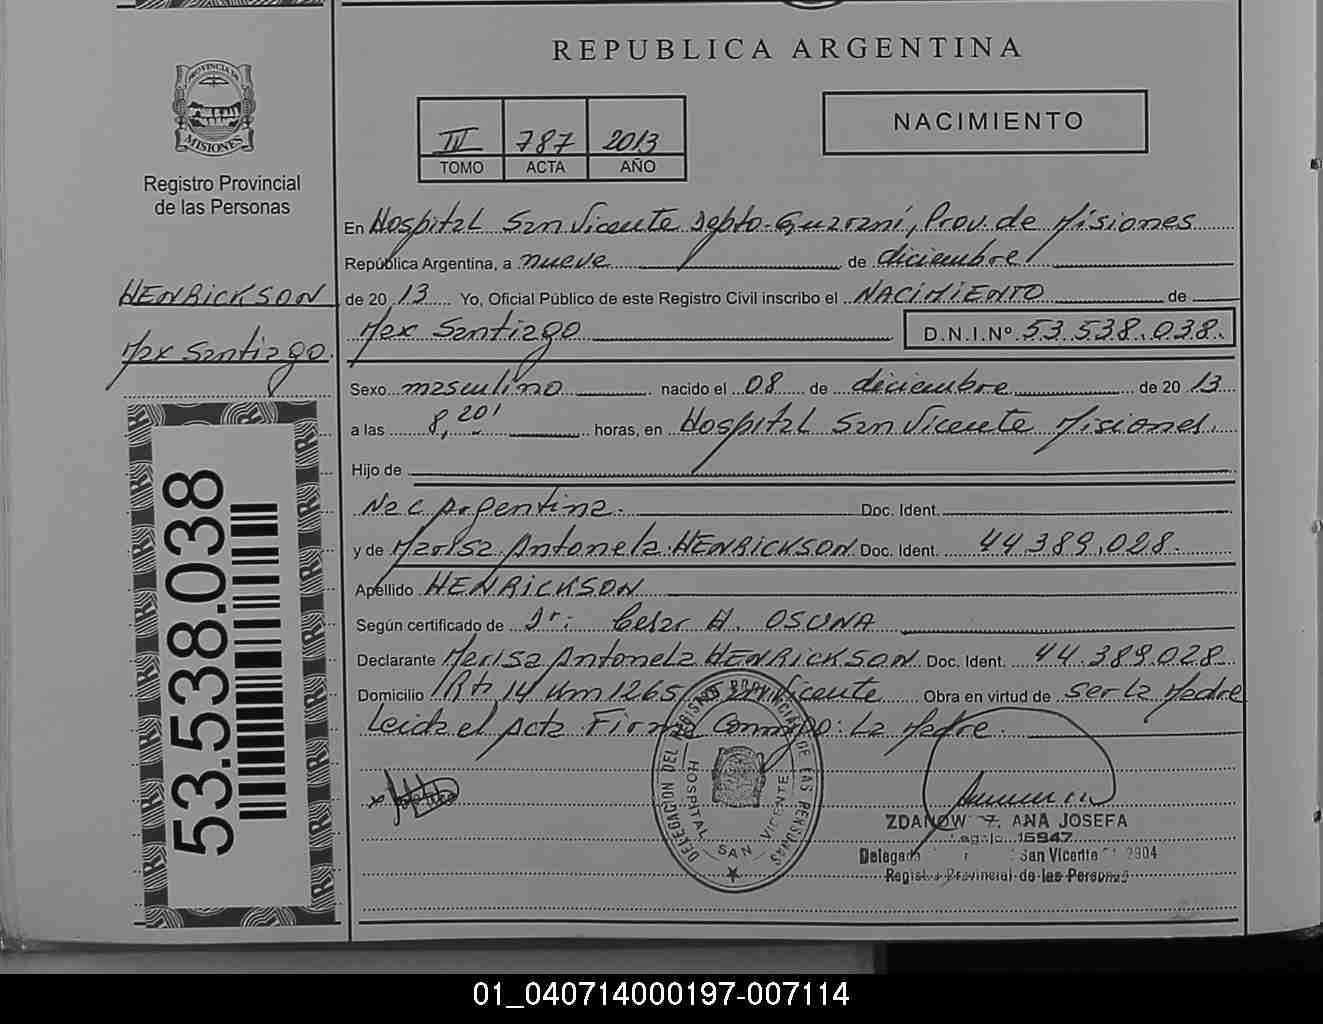 REPUBLICA ARGENTINA
PROVINCIA DE
MISIONES
Registro Provincial
de las Personas
HENRICKSON
Max Santiago
53.538.038
III 787 2013
TOMO ACTA AÑO
NACIMIENTO
En Hospital San Vicente Depto-Guaraní, Prov. de Misiones
República Argentina, a nueve de diciembre
de 2013 Yo, Oficial Público de este Registro Civil inscribo el NACIMIENTO de
Max Santiago D.N.I.Nº 53.538.038.
Sexo masculino nacido el 08 de diciembre de 2013
a las 8,20' horas, en Hospital San Vicente Misiones.
Hijo de
Nac Argentina. Doc. Ident.
y de Marisa Antonela HENRICKSON Doc. Ident. 44.389.028.
Apellido HENRICKSON
Según certificado de Dr: Cesar A. OSUNA
Declarante Marisa Antonela HENRICKSON Doc. Ident. 44.389.028
Domicilio Rta 14 Km 1265 San Vicente Obra en virtud de ser la Madre
Leida el Acta Firma Conmigo: La Madre.
DELEGACION DEL REGISTRO PROVINCIAL DE LAS PERSONAS
HOSPITAL SAN VICENTE
ZDANOW Z. ANA JOSEFA
Legajo 15947
San Vicente 2904
Registro Provincial de las Personas
01_040714000197-007114